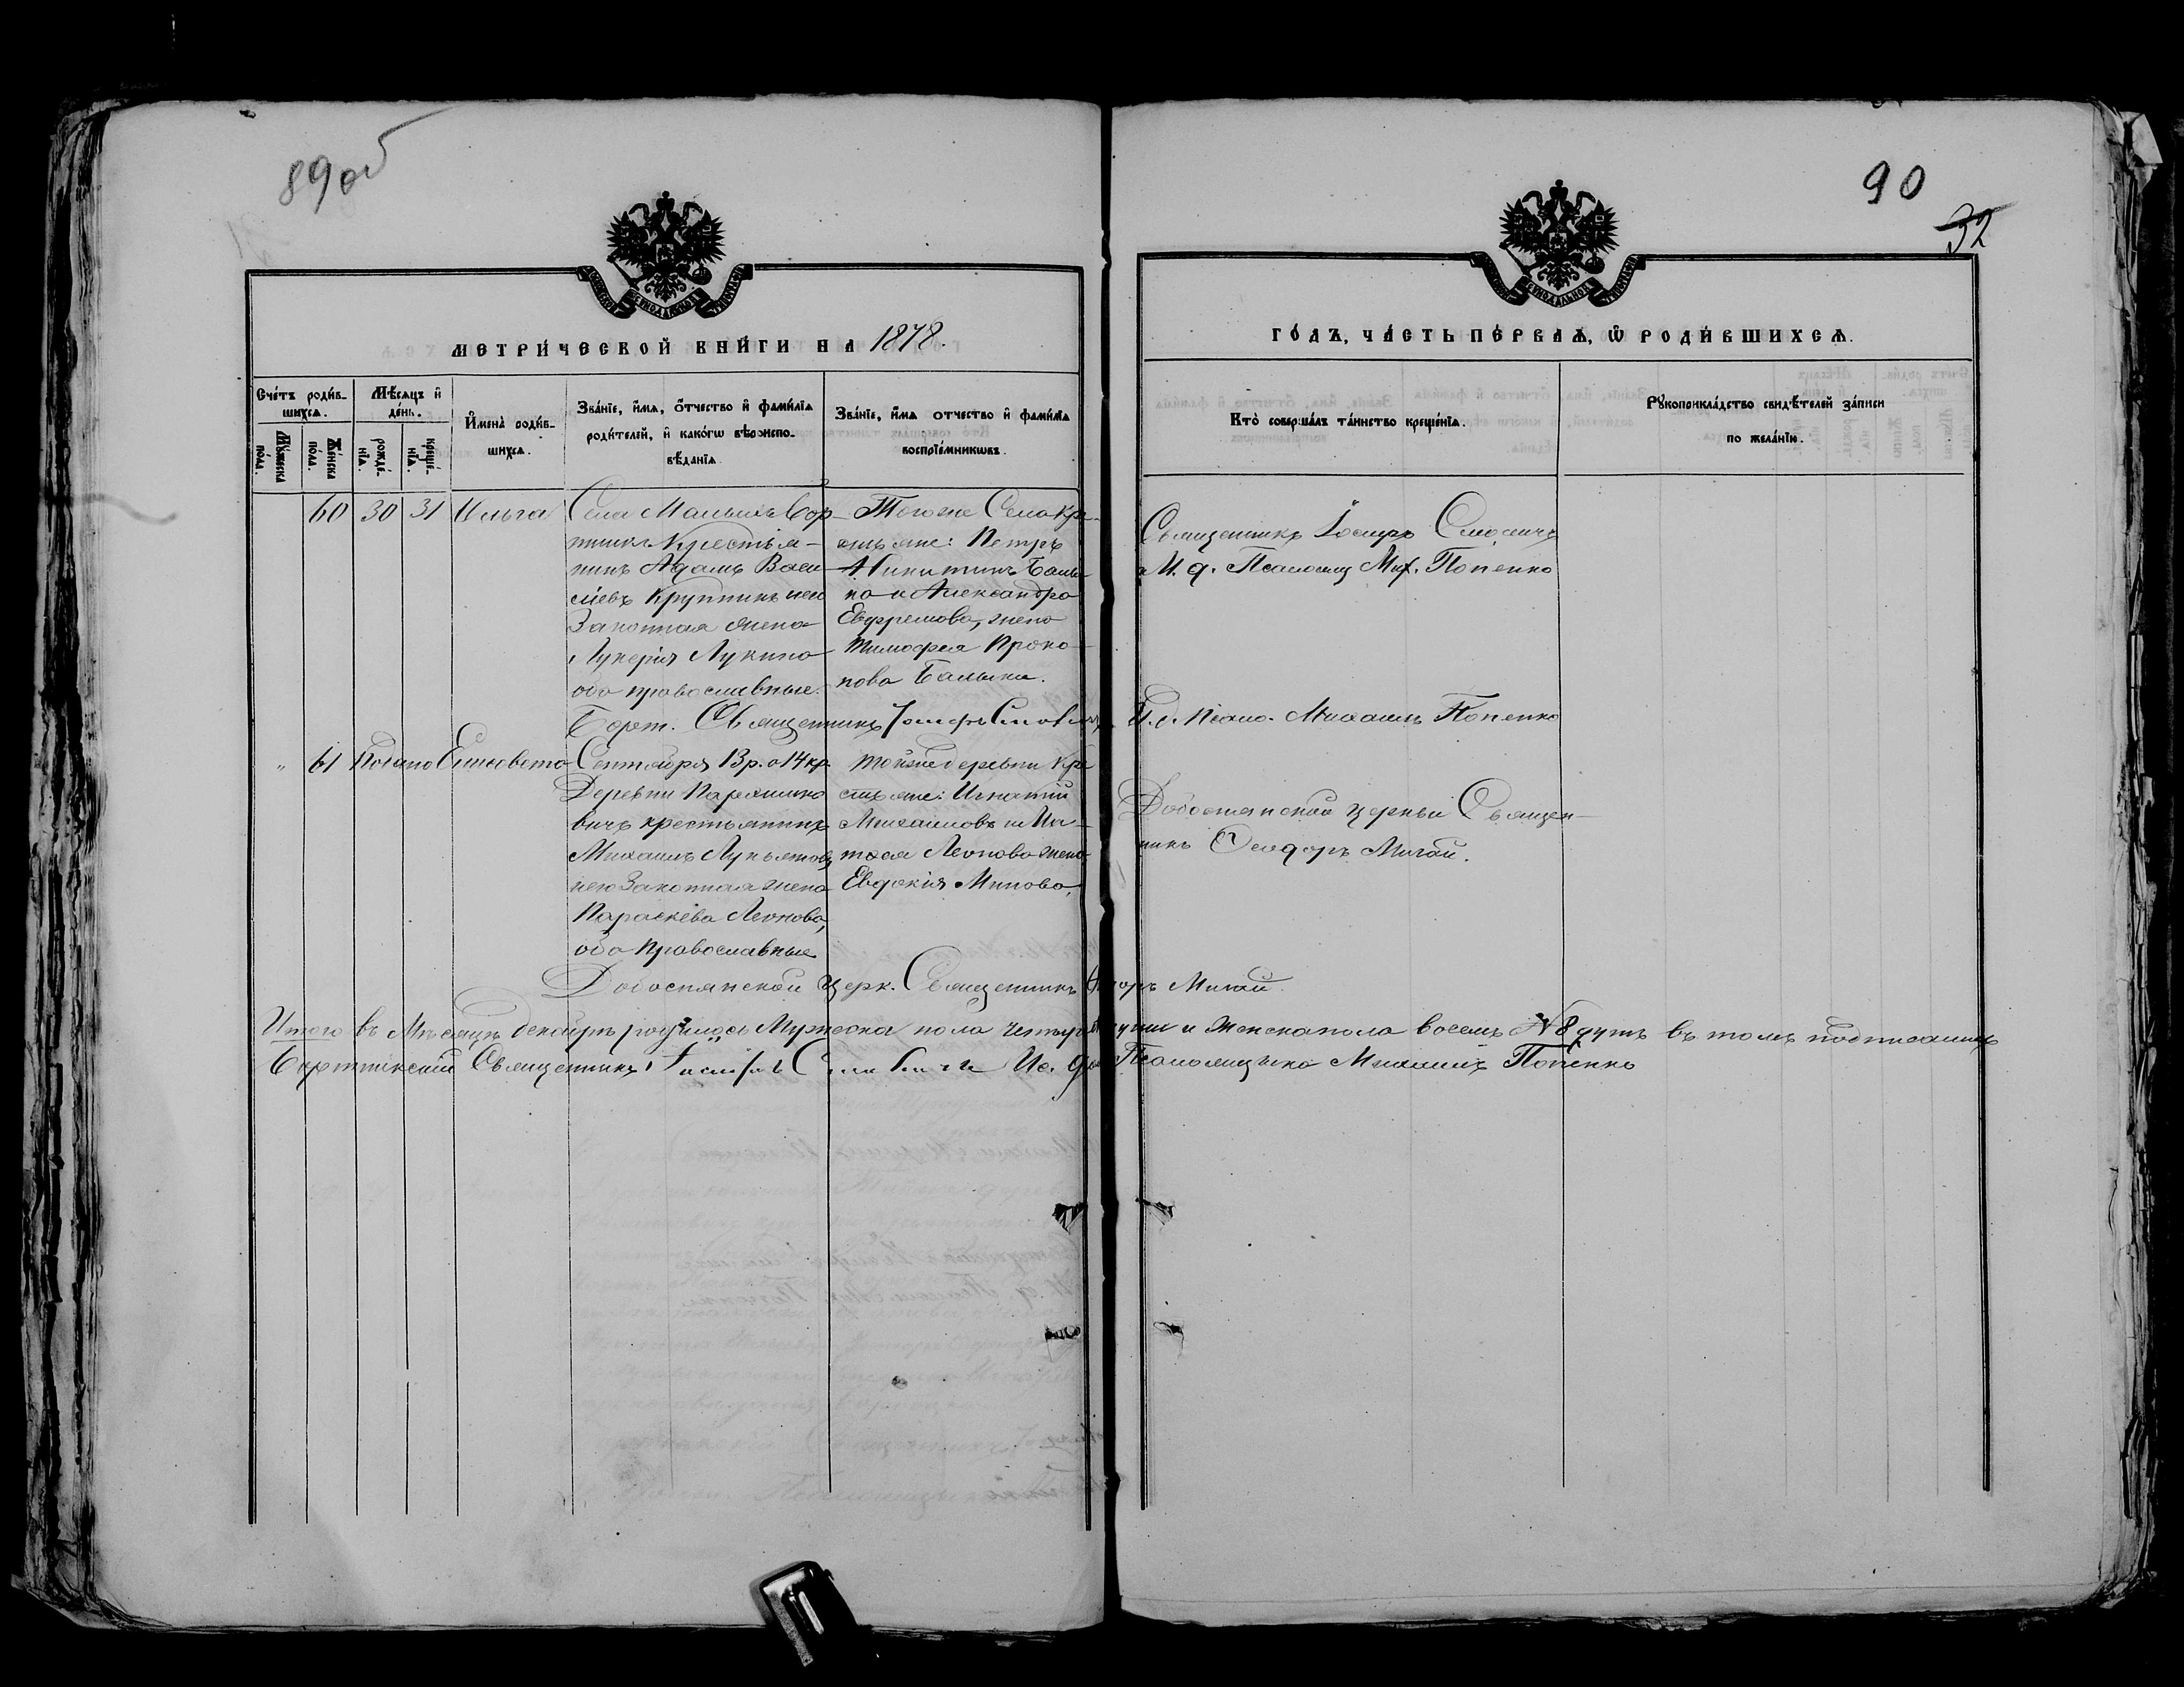 89об
90
32
МЕТРИ́ЧЕСКОЙ КНИ́ГИ НА 1878.
ГО́ДЪ, ЧА́СТЬ ПЕ́РВАѦ, Ѽ РОДИ́ВШИХСѦ.
Сче́тъ роди́вшихсѧ.
Мѣ́сѧцъ и де́нь.
Мꙋ́жеска по́ла.
Же́нска по́ла.
рожде́нїѧ.
креще́нїѧ.
И҆мена̀ роди́вшихсѧ.
Зва́нїе, и҆́мѧ, ѻ҆́тчество и҆ фамилїѧ роди́телей, и҆ како́гѡ вѣроисповѣ́данїѧ.
Зва́нїе, и҆́мѧ ѻ҆тчество и҆ фамилїѧ воспрїе́мникѡвъ.
Кто̀ соверша́лъ та́инство креще́нїѧ.
Рꙋкоприкла́дство свидѣ́телей за́писи по жела́нїю.
60 30 31
Села Малыхъ Бор-
тникъ Крестья-
нинъ Адамъ Васи
лiевъ Крупникъ и его
Законная жена
Лукерiя Лукина
оба православные.
Тогоже Села Кре-
стьяне: Петръ
Никитинъ
на и Александра
Ефремова, жена
Тимофея Проко-
пова
Священникъ Іосифъ
и И. д. Псаломщ Мих. Попенко
Священникъ Іосифъ
И. д. Псало. Михаилъ Попенко
" 61 Елисавета
Сентября 13 р. а 14 кр.
Деревни
вичъ крестьянинъ
Михаилъ Лукьяновъ
и его Законная жена
Параскева Леонова,
оба Православные
Тойже деревни Кре
стьяне: Игнатiй
Михаиловъ и Иг-
натея Леонова жена
Евдокiя Минова.
церкви Священ-
никъ Феодоръ
Церк. Священникъ
Итого въ Мѣсяцѣ декабрѣ родилось Мужеска пола четыре души и Женска пола восемь № 8 душъ въ томъ подписались
Бортникскiй Священникъ Іосифъ и Ис. д. Псаломщика Михаилъ Попенко